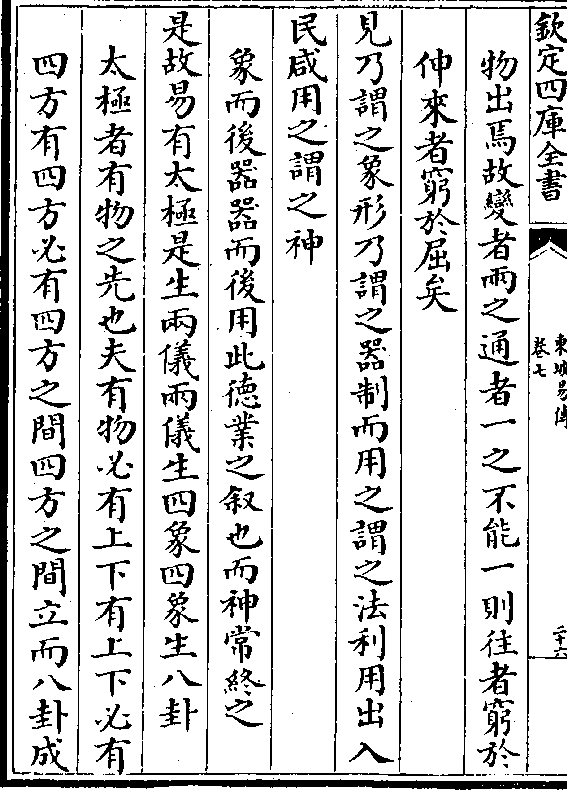 欽定四庫全書
東坡易傳
卷七
二十六
物出焉故變者兩之通者一之不能一則往者窮於
伸來者窮於屈矣
見乃謂之象形乃謂之器制而用之謂之法利用出入
民咸用之謂之神
象而後器器而後用此德業之叙也而神常終之
是故易有太極是生兩儀兩儀生四象四象生八卦
太極者有物之先也夫有物必有上下有上下必有
四方有四方必有四方之間四方之間立而八卦成